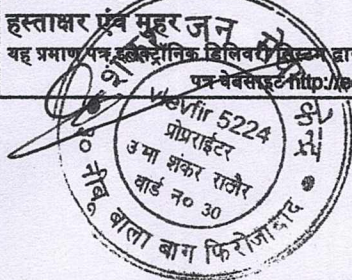 हस्ताक्षर एंव मुहर
यह प्रमाण पत्र इलेक्ट्रॉनिक डिलिवरी सिस्टम द्वा
पत्र वेबसाइट http://
जन केन्द्र
5224
प्रोपराईटर
उमा शंकर राठौर
वार्ड न० 30
नीबू वाला बाग फिरोजाबाद